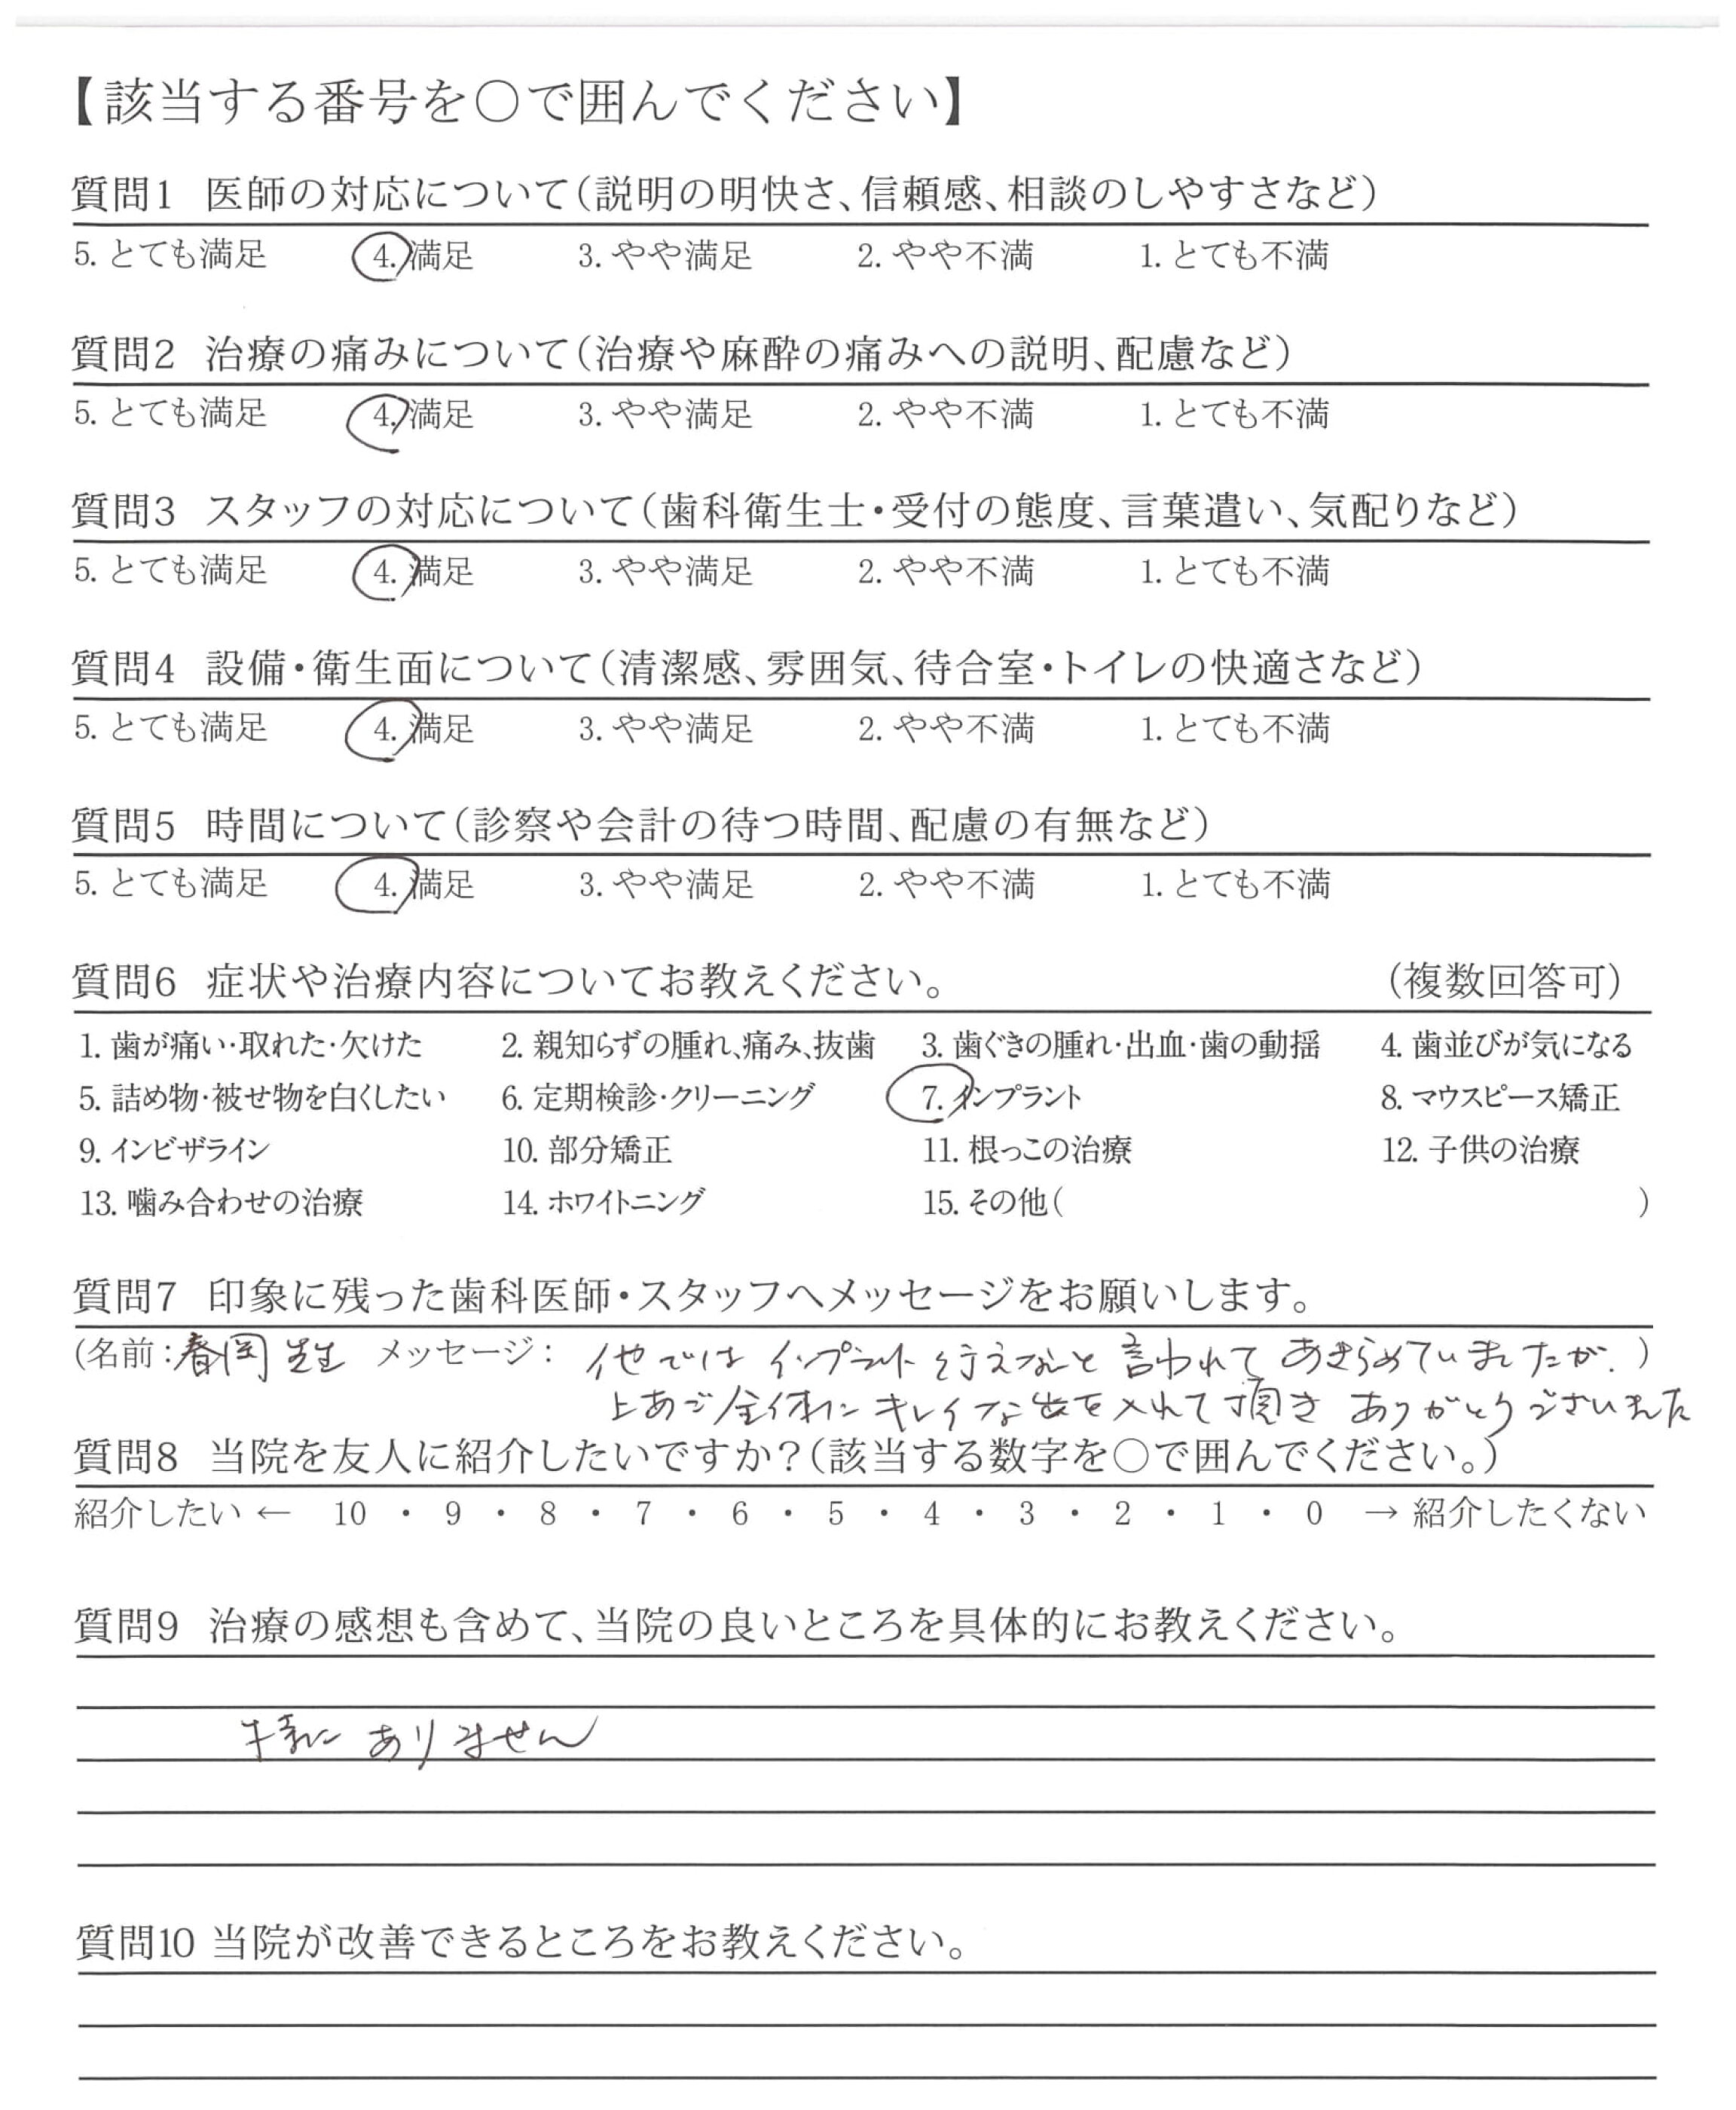 【該当する番号を○で囲んでください】
質問1 医師の対応について(説明の明快さ、信頼感、相談のしやすさなど)
5. とても満足 4. 満足 3. やや満足 2. やや不満 1. とても不満
質問2 治療の痛みについて(治療や麻酔の痛みへの説明、配慮など)
5. とても満足 4. 満足 3. やや満足 2. やや不満 1. とても不満
質問3 スタッフの対応について(歯科衛生士・受付の態度、言葉遣い、気配りなど)
5. とても満足 4. 満足 3. やや満足 2. やや不満 1. とても不満
質問4 設備・衛生面について(清潔感、雰囲気、待合室・トイレの快適さなど)
5. とても満足 4. 満足 3. やや満足 2. やや不満 1. とても不満
質問5 時間について(診察や会計の待つ時間、配慮の有無など)
5. とても満足 4. 満足 3. やや満足 2. やや不満 1. とても不満
質問6 症状や治療内容についてお教えください。 (複数回答可)
1. 歯が痛い・取れた・欠けた 2. 親知らずの腫れ、痛み、抜歯 3. 歯ぐきの腫れ・出血・歯の動揺 4. 歯並びが気になる
5. 詰め物・被せ物を白くしたい 6. 定期検診・クリーニング 7. インプラント 8. マウスピース矯正
9. インビザライン 10. 部分矯正 11. 根っこの治療 12. 子供の治療
13. 噛み合わせの治療 14. ホワイトニング 15. その他( )
質問7 印象に残った歯科医師・スタッフへメッセージをお願いします。
(名前:春岡 先生 メッセージ: 他ではインプラントを行えないと言われてあきらめていましたが、)
上あご全体にキレイな歯を入れて頂きありがとうございました
質問8 当院を友人に紹介したいですか?(該当する数字を○で囲んでください。)
紹介したい ← 10 ・ 9 ・ 8 ・ 7 ・ 6 ・ 5 ・ 4 ・ 3 ・ 2 ・ 1 ・ 0 → 紹介したくない
質問9 治療の感想も含めて、当院の良いところを具体的にお教えください。
特にありません
質問10 当院が改善できるところをお教えください。